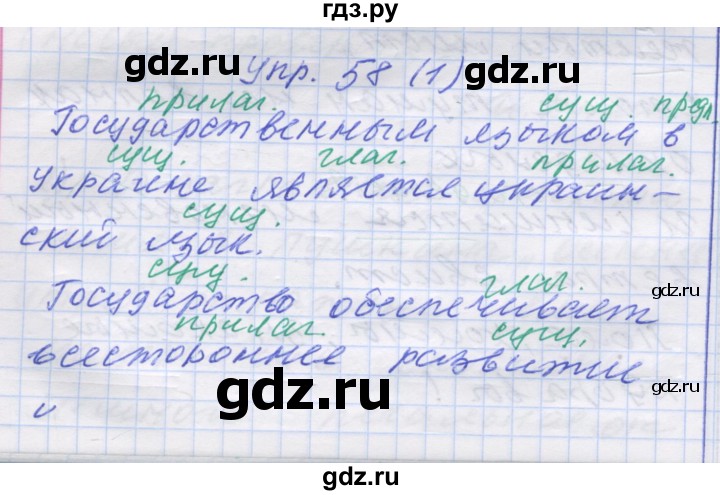 гдз.ру
Упр. 58 (1)
gdz.ru gdz.ru
прилаг. сущ. предл.
Государственным языком в
сущ. глаг. прилаг.
Украине является украин-
сущ.
ский язык.
сущ. глаг.
gdz.ru
Государство обеспечивает
прилаг. сущ.
всестороннее развитие
gdz.ru gdz.ru
и
gdz.ru